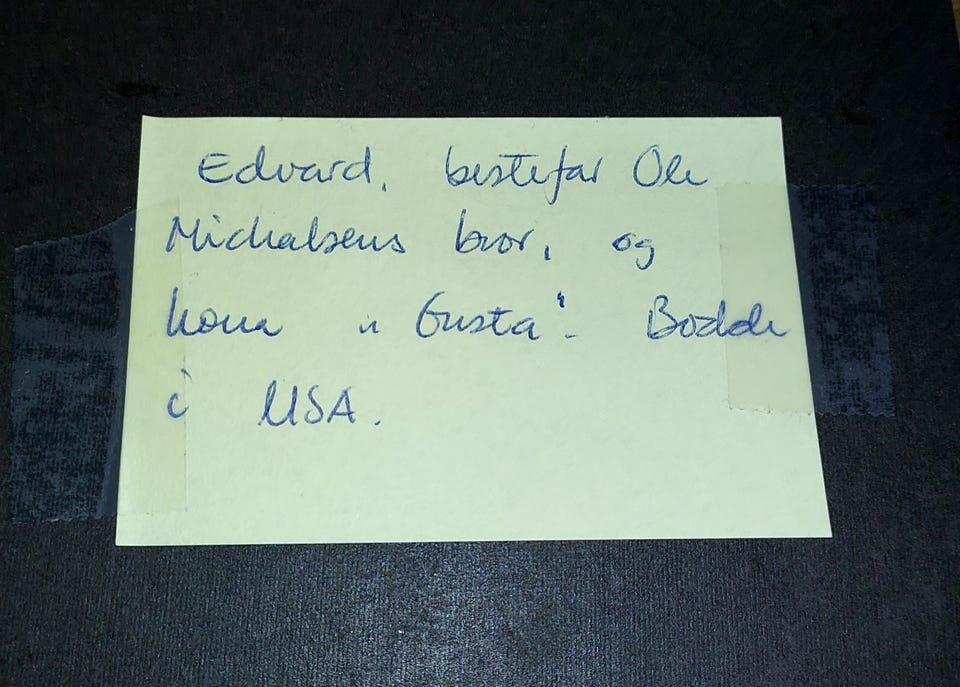 Edvard, bestefar Ole
Michalsens bror, og
kona "Gusta". Bodde
i USA.